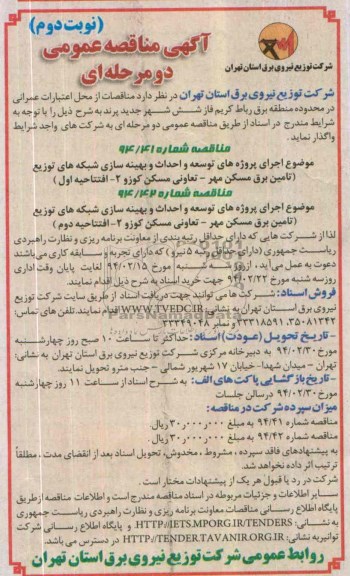 (نوبت دوم)
آگهی مناقصه عمومی
دو مرحله ای
شرکت توزیع نیروی برق استان تهران
شرکت توزیع نیروی برق استان تهران در نظر دارد مناقصات از محل اعتبارات عمرانی
در محدوده منطقه برق رباط کریم فاز شش شهر جدید پرند به شرح ذیل را با توجه به
شرایط مندرج در اسناد از طریق مناقصه عمومی دو مرحله ای به شرکت های واجد شرایط
واگذار نماید.
مناقصه شماره ۹۴/۴۱
موضوع اجرای پروژه های توسعه و احداث و بهینه سازی شبکه های توزیع
(تامین برق مسکن مهر - تعاونی مسکن کوزو ۲- افتتاحیه اول )
مناقصه شماره ۹۴/۴۲
موضوع اجرای پروژه های توسعه و احداث و بهینه سازی شبکه های توزیع
(تامین برق مسکن مهر - تعاونی مسکن کوزو ۲- افتتاحیه دوم )
لذا از شرکت هایی که دارای حداقل رتبه بندی از معاونت برنامه ریزی و نظارت راهبردی
ریاست جمهوری (دارای حداقل رتبه ۵ نیرو) که دارای تجربه و سابقه کاری می باشند
دعوت به عمل می آید، از روز سه شنبه مورخ ۹۴/۰۲/۱۵ لغایت پایان وقت اداری
روز سه شنبه مورخ ۹۴/۰۲/۲۲ جهت خرید اسناد به شرح ذیل اقدام نمایند.
فروش اسناد: شرکت ها می توانند جهت دریافت اسناد از طریق سایت شرکت توزیع
نیروی برق استان تهران به نشانی: WWW.TVEDC.IR اقدام نمایند. تلفن های تماس:
۳۵۰۸۱۳۴۲، ۳۳۳۱۸۵۹۱ و نمابر ۳۳۳۴۹۰۴۸
- تاریخ تحویل (عودت) اسناد: حداکثر تا ساعت ۱۰ صبح روز چهارشنبه
مورخ ۹۴/۰۲/۳۰ به دبیرخانه مرکزی شرکت توزیع نیروی برق استان تهران به نشانی:
تهران - میدان شهدا- خیابان ۱۷ شهریور شمالی - جنب مترو تحویل نمایند.
- تاریخ بازگشایی پاکت های الف: به شرح اسناد از ساعت ۱۱ روز چهارشنبه
مورخ ۹۴/۰۲/۳۰ در سالن جلسات
میزان سپرده شرکت در مناقصه:
مناقصه شماره ۹۴/۴۱ به مبلغ ۳۰,۰۰۰,۰۰۰ ریال.
مناقصه شماره ۹۴/۴۲ به مبلغ ۳۰,۰۰۰,۰۰۰ ریال.
به پیشنهادهای فاقد سپرده ، مشروط ، مخدوش، تحویل اسناد بعد از انقضای مدت ، مطلقاً
ترتیب اثر داده نخواهد شد.
شرکت در رد یا قبول هر یک از پیشنهادات مختار است .
سایر اطلاعات و جزئیات مربوطه در اسناد مناقصه مندرج است و اطلاعات مناقصه از طریق
پایگاه اطلاع رسانی مناقصات معاونت برنامه ریزی و نظارت راهبردی ریاست جمهوری
به نشانی: HTTP://IETS.MPORG.IR/TENDERS و پایگاه اطلاع رسانی شرکت
توانیر به نشانی: HTTP://TENDER.TAVANIR.ORG.IR در دسترس می باشد.
روابط عمومی شرکت توزیع نیروی برق استان تهران